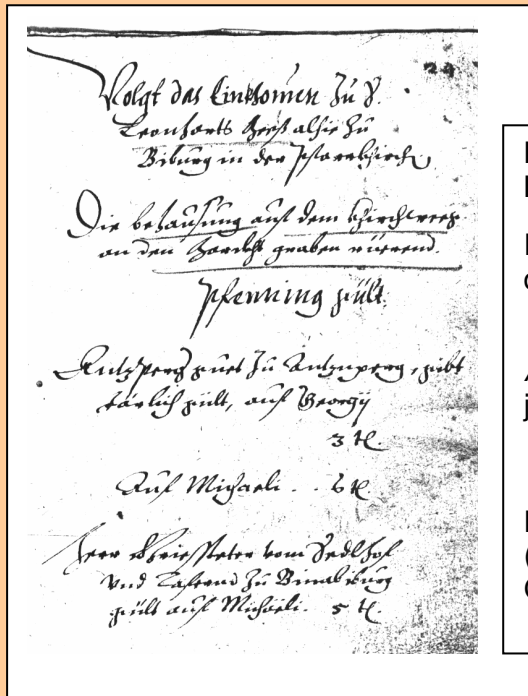 24
Volgt das Einkomen Zu S.
Leonharts Meeß alhie Zu
Biburg in der Pfarrkhirch
Die behausung auf dem khirchweeg
an den graben rüerend.
Pfenning gült.
guet Zu , gibt
Järlich gült, auf Georgij
3 tl.
Auf Michaeli . . 6 tl.
Herr vom Sedlhof
Vnd Tafern Zu Binabiburg
gült auf Michaeli. 5 tl.
j
(